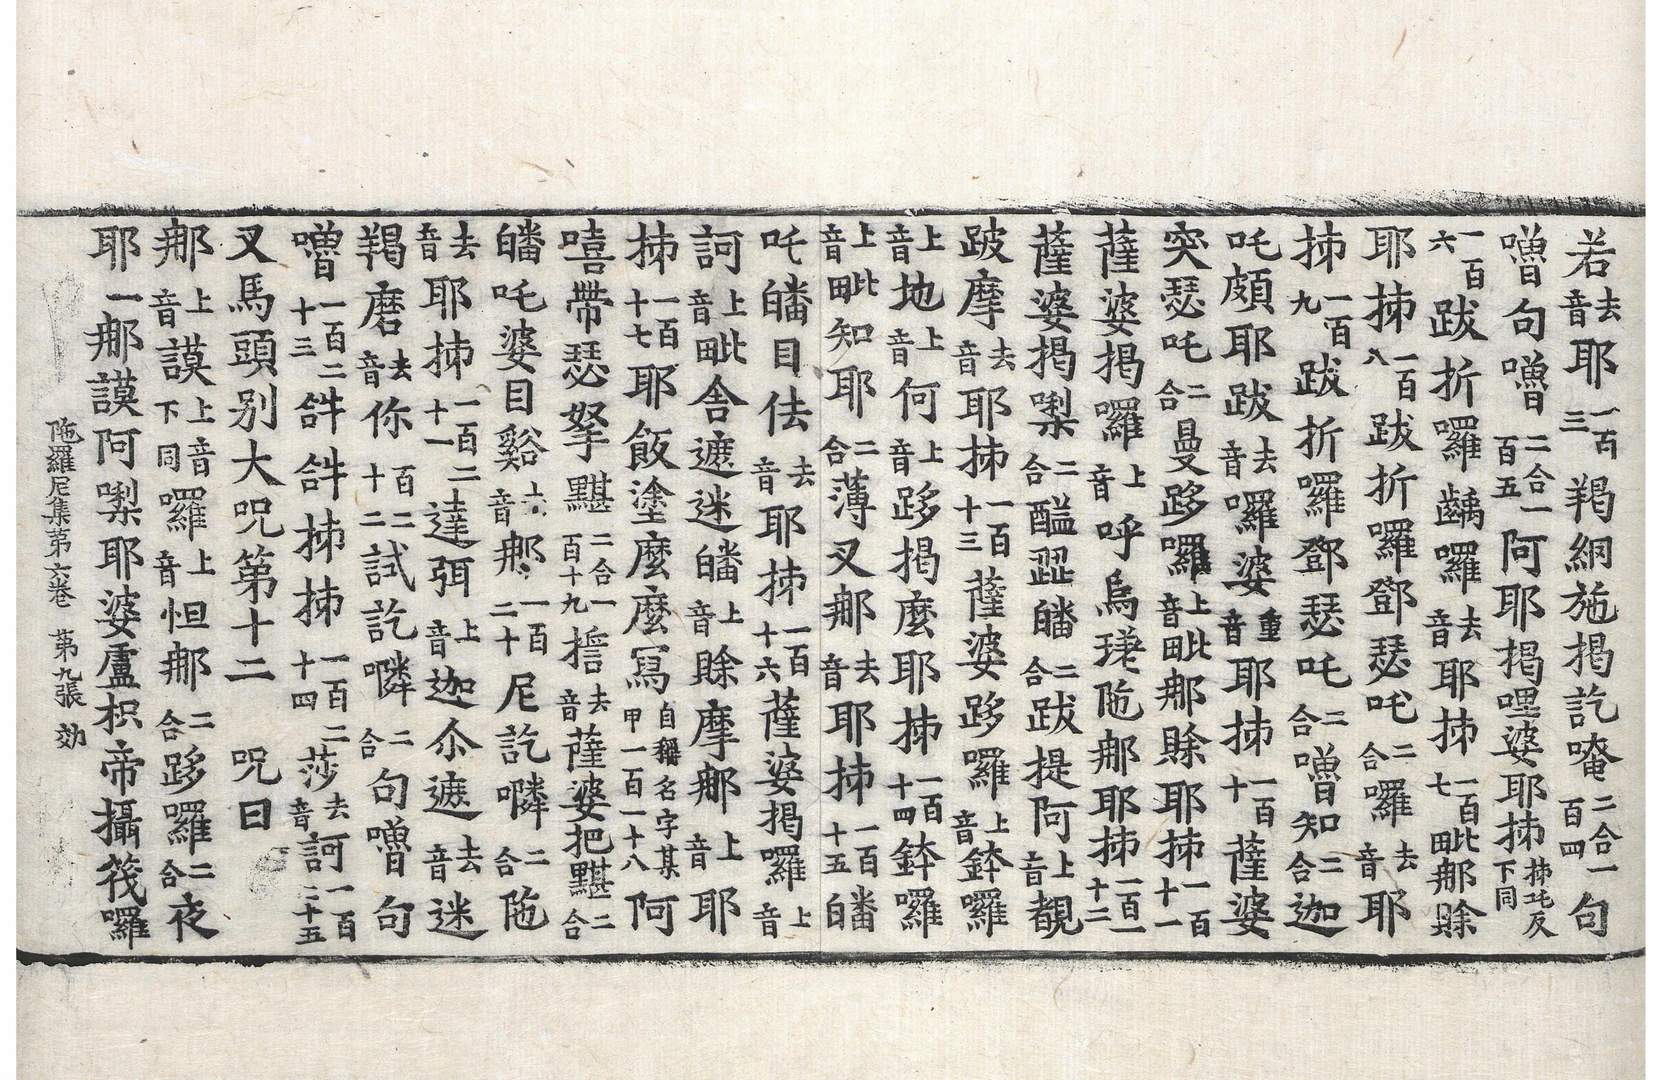 若去音耶一百三羯綗施揭訖唵二合一百四句
噆句噆二合一百五阿耶揭哩婆耶㧊㧊吒反下同
一百六跋折囉齲囉去音耶㧊一百七毗那賒
耶㧊一百八跋折囉鄧瑟吒二合囉去音耶
㧊一百九跋折囉鄧瑟吒二合噆知二合迦
吒頗耶跋去音囉婆重音耶㧊一百十薩婆
突瑟吒二合曼跢囉上音毗那賒耶㧊一百十一
薩婆揭囉上音呼烏㻞陁那耶㧊一百一十二
薩婆揭㗚二合醯澀皤二合跋提阿上音覩
跛摩去音耶㧊一百十三薩婆跢囉上音鉢囉
上音地上音何上音跢揭麼耶㧊一百十四鉢囉
上音毗知耶二合薄叉那去音耶㧊一百十五皤
吒皤目佉去音耶㧊一百十六薩婆揭囉上音
訶上音毗舍遮迷皤上音賒摩那上音耶
㧊一百十七耶飯塗麼麼冩自稱名字某甲一百一十八阿
嘻帶瑟拏䵷二合一百十九㨄去音薩婆把䵷二合
皤吒婆目谿去音那一百二十尼訖㗚二合陁
去音耶㧊一百二十一達弭上音迦尒遮去音迷
羯磨去音你百二十二試訖㗚二合句噆句
噆一百二十三𤙖𤙖㧊㧊一百二十四莎去音訶一百二十五
又馬頭別大呪第十二　呪曰
那上音謨上音下同囉上音怛那二合跢囉二合夜
耶一那謨阿㗚耶婆盧枳帝攝筏囉
陁羅尼集第六卷　第九張　効